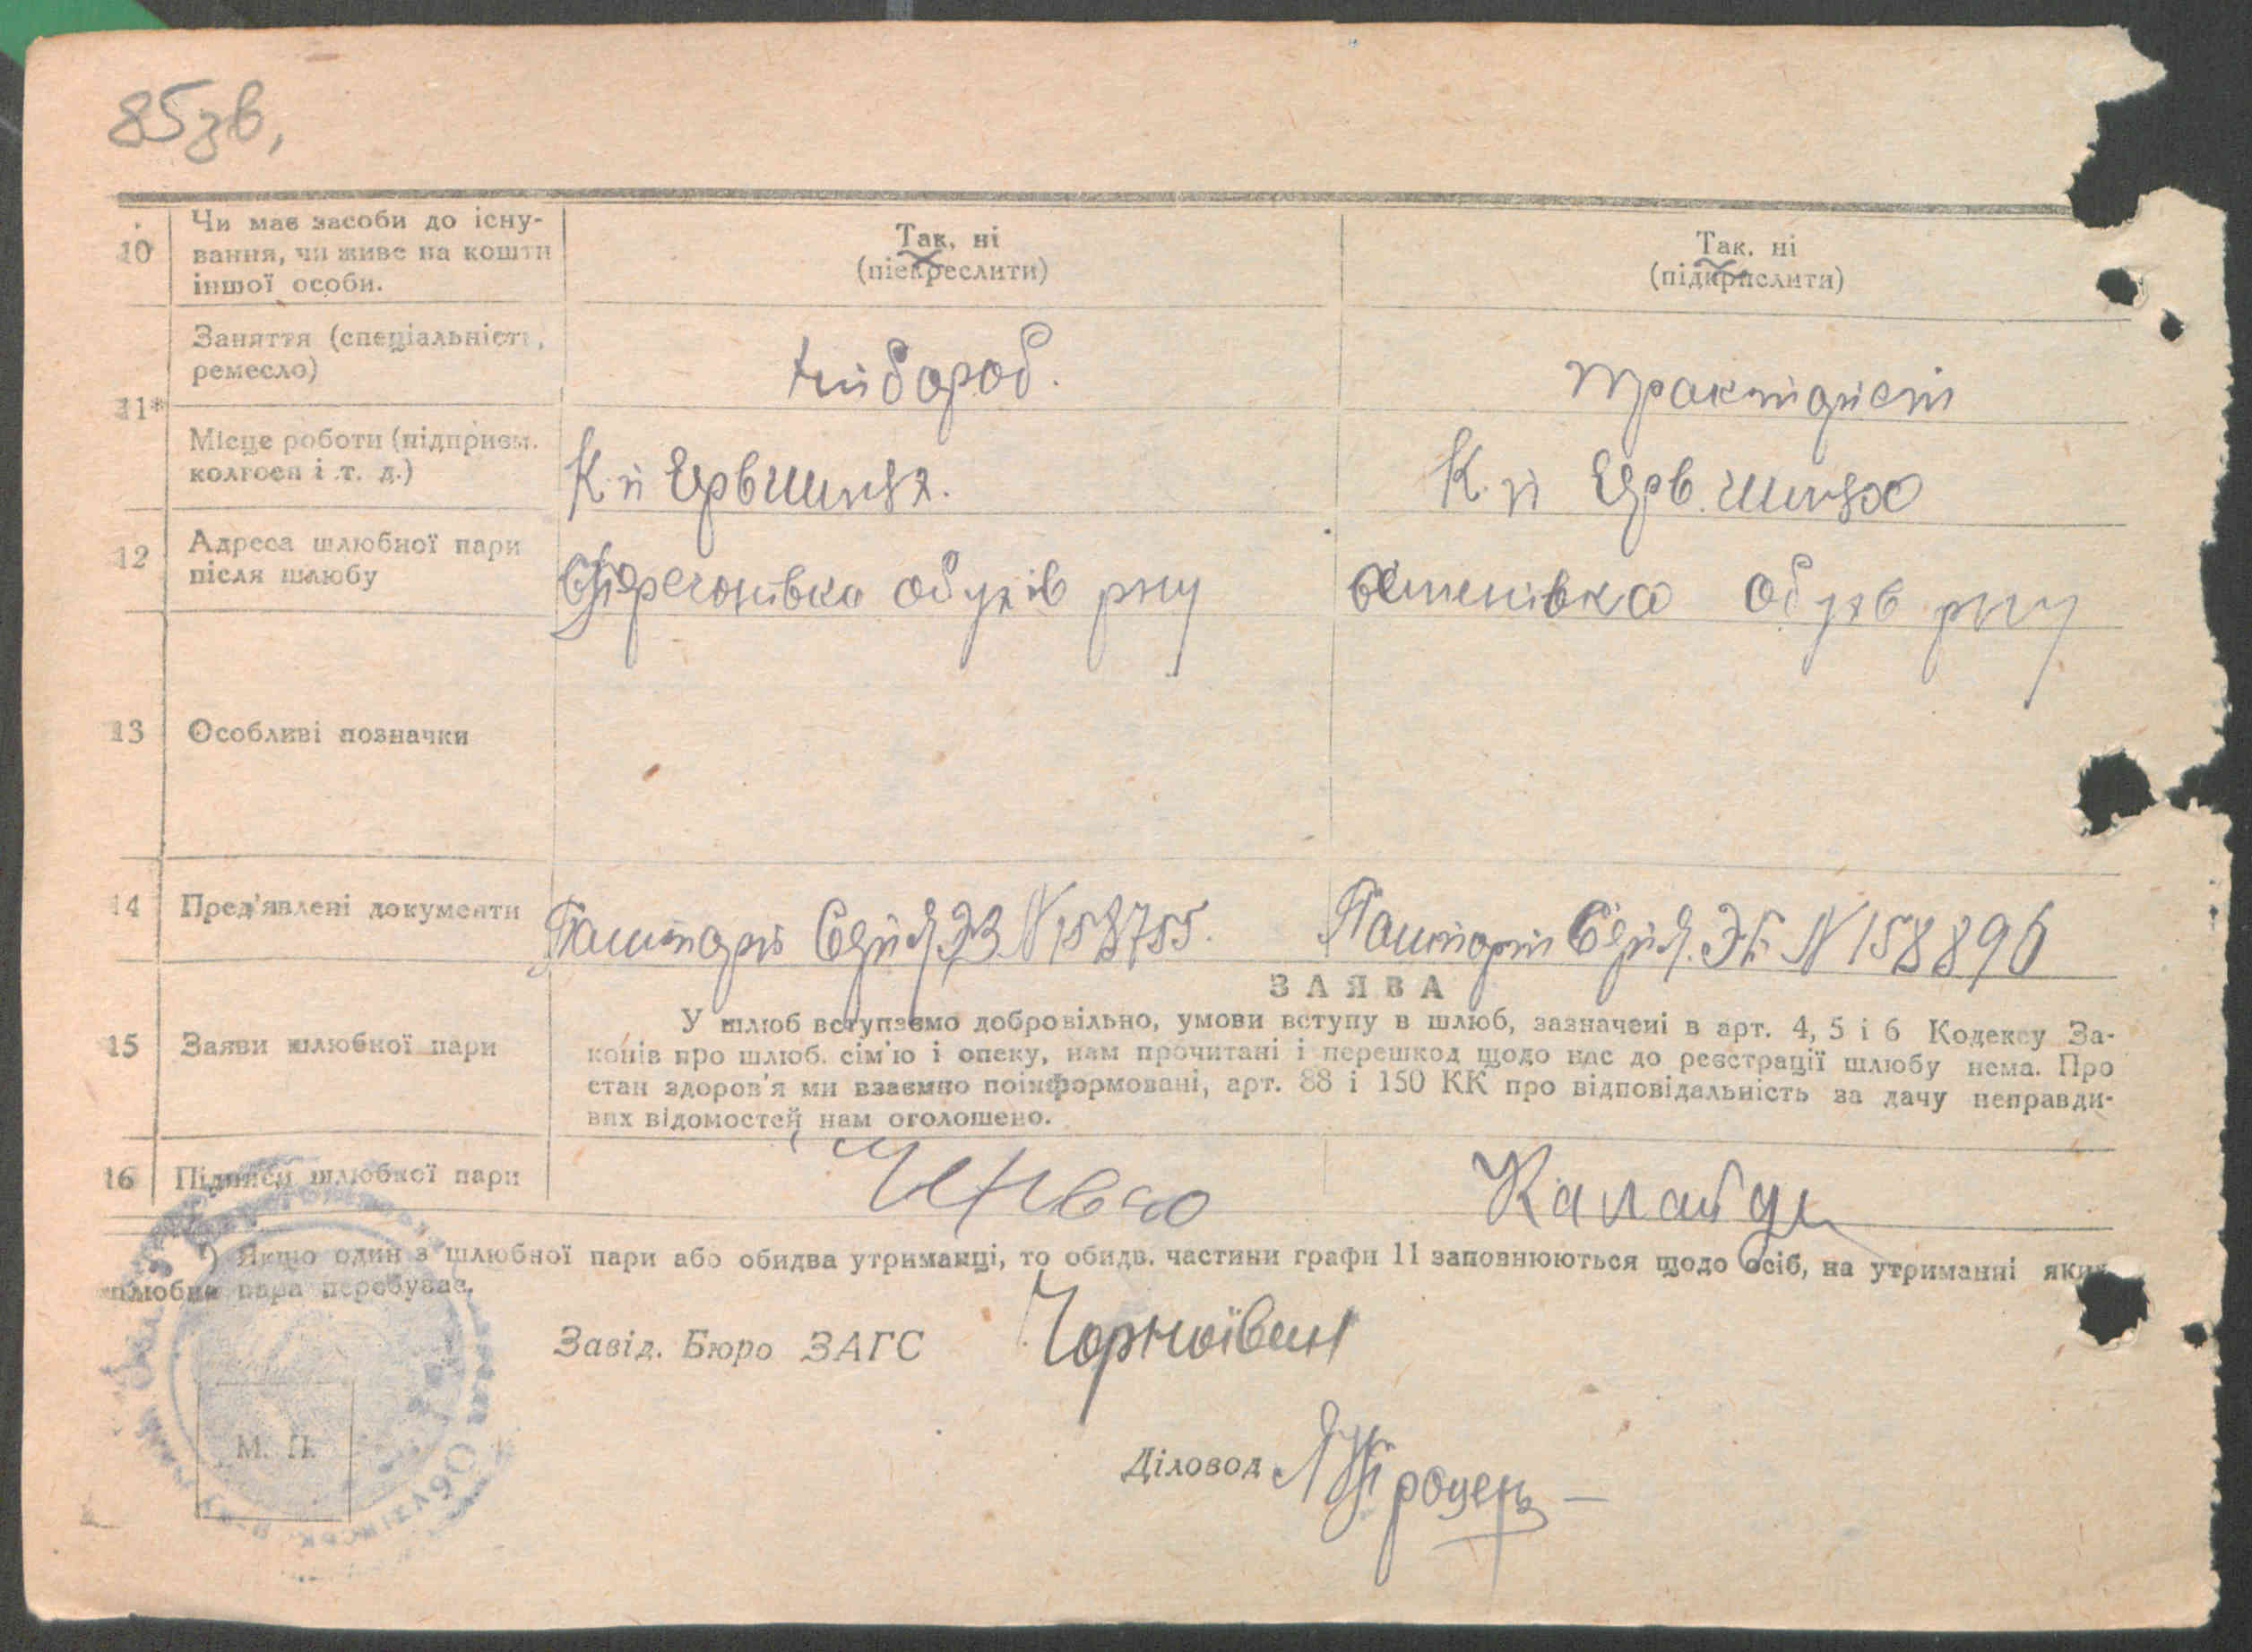 85зв,
10 Чи має засоби до існу-
вання, чи живе на кошти
іншої особи.
Так, ні
(піекреслити)
Так, ні
(підкрислити)
11*
Заняття (спеціальність,
ремесло)
хлібороб.
тракторист
Місце роботи (підприєм.
колгосп і т. д.)
К п Чрв Шлях.
К п Чрв. Шлях
12 Адреса шлюбної пари
після шлюбу
обухів рну
обухв рну
13 Особливі позначки
14 Пред'явлені документи
Пашпорт Серія ЭЗ N 158755.
Пашпорт Серія. ЭГ N 158896
15 Заяви шлюбної пари
ЗАЯВА
У шлюб вступаємо добровільно, умови вступу в шлюб, зазначені в арт. 4, 5 і 6 Кодексу За-
конів про шлюб. сім'ю і опеку, нам прочитані і перешкод щодо нас до реєстрації шлюбу нема. Про
стан здоров'я ми взаємно поінформовані, арт. 88 і 150 КК про відповідальність за дачу неправди-
вих відомостей нам оголошено.
16 Підписи шлюбної пари
Калайда
*) Якщо один з шлюбної пари або обидва утриманці, то обидв. частини графи 11 заповнюються щодо осіб, на утриманні яких
шлюбна пара перебуває.
Завід. Бюро ЗАГС
Чорноіван
М. П.
Діловод